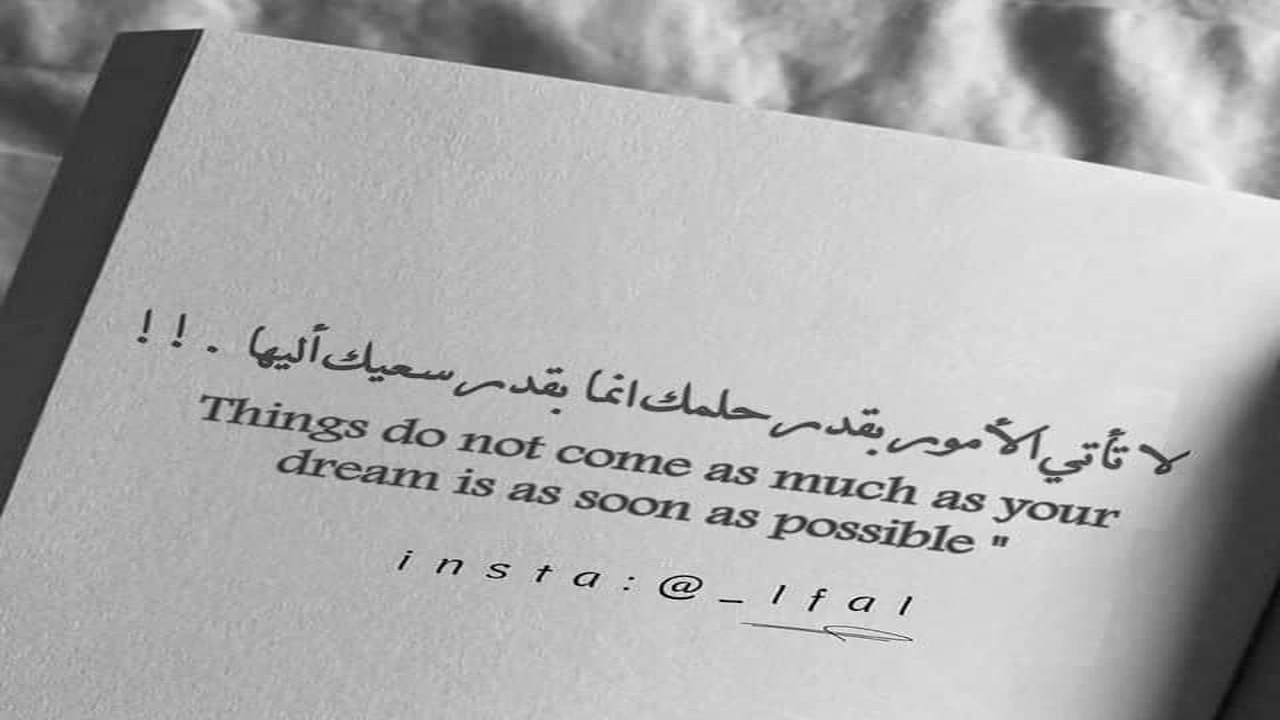 لا تأتي الأمور بقدر حلمك انما بقدر سعيك أليها . ! !
Things do not come as much as your
dream is as soon as possible "
insta:@_lfal